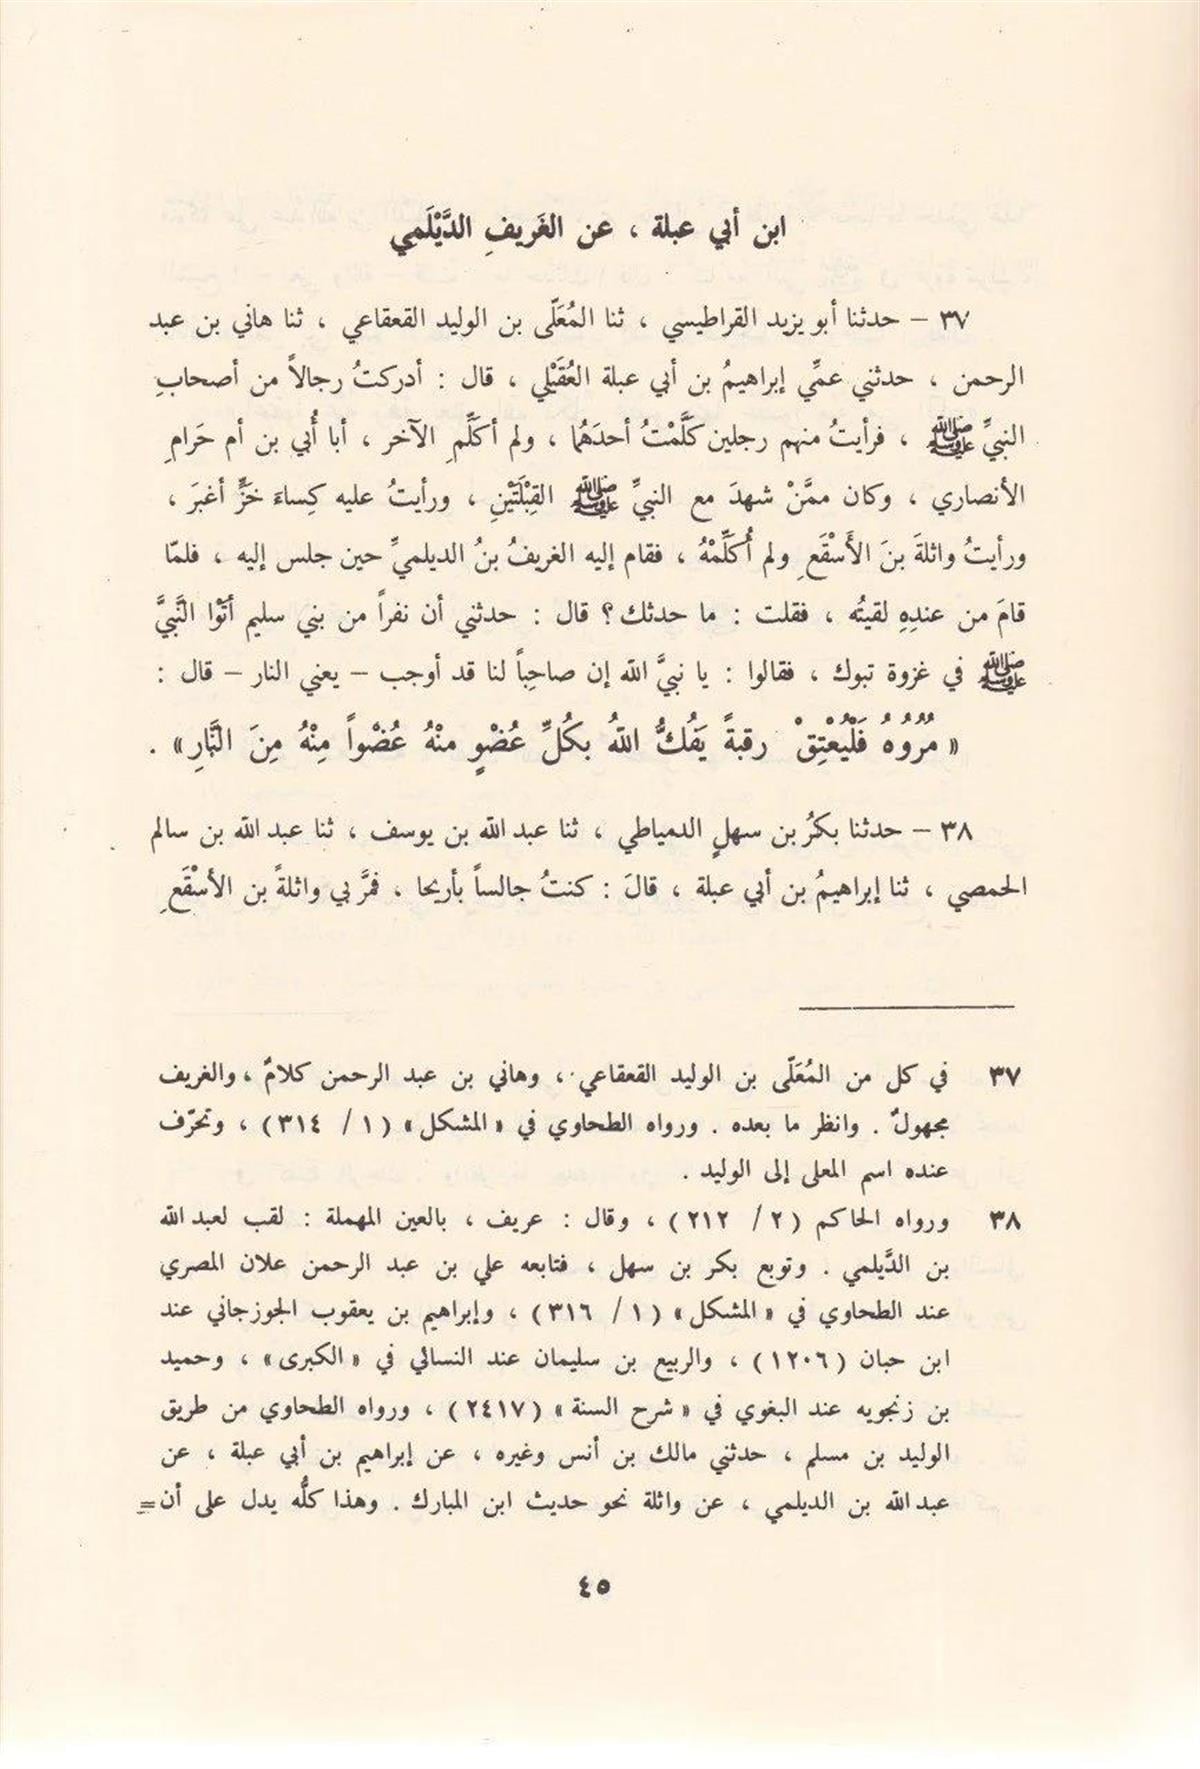 ابن أبي عبلة ، عن الغَريفِ الدَّيْلَمي
٣٧ – حدثنا أبو يزيد القراطيسي ، ثنا المُعَلّى بن الوليد القعقاعي ، ثنا هاني بن عبد
الرحمن ، حدثني عمِّي إبراهيمُ بن أبي عبلة العُقَيْلي ، قال : أدركتُ رجالاً من أصحابِ
النبيِّ ﷺ ، فرأيتُ منهم رجلين كلَّمْتُ أحدَهُما ، ولم أكلِّمِ الآخر ، أبا أُبي بن أم حَرامِ
الأنصاري ، وكان ممَّنْ شهدَ مع النبيِّ ﷺ القِبْلَتَيْنِ ، ورأيتُ عليه كِساءَ خَزٍّ أغبَرَ ،
ورأيتُ واثلةَ بنَ الأَسْقَعِ ولم أُكَلِّمْهُ ، فقام إليه الغريفُ بنُ الديلميِّ حين جلس إليه ، فلمّا
قامَ من عندِهِ لقيتُه ، فقلت : ما حدثك ؟ قال : حدثني أن نفراً من بني سليم أتَوْا النَّبيَّ
ﷺ في غزوة تبوك ، فقالوا : يا نبيَّ الله إن صاحِباً لنا قد أوجب – يعني النار – قال :
« مُرُوهُ فَلْيُعْتِقْ رقبةً يَفُكُّ اللهُ بكُلِّ عُضْوٍ منْهُ عُضْواً مِنْهُ مِنَ النَّارِ» .
٣٨ – حدثنا بكرُ بن سهلٍ الدمياطي ، ثنا عبد الله بن يوسف ، ثنا عبد الله بن سالم
الحمصي ، ثنا إبراهيمُ بن أبي عبلة ، قالَ : كنتُ جالساً بأريحا ، فمَّر بي واثلةً بن الأسْقَعِ
٣٧ في كل من المُعَلّى بن الوليد القعقاعي ، وهاني بن عبد الرحمن كلامٌ ، والغريف
مجهولٌ . وانظر ما بعده . ورواه الطحاوي في «المشكل» (١ / ٣١٤) ، وتحرّف
عنده اسم المعلى إلى الوليد .
٣٨ ورواه الحاكم (٢ / ٢١٢) ، وقال : عريف ، بالعين المهملة : لقب لعبد الله
بن الدَّيلمي . وتوبع بكر بن سهل ، فتابعه علي بن عبد الرحمن علان المصري
عند الطحاوي في «المشكل» (١ / ٣١٦) ، وإبراهيم بن يعقوب الجوزجاني عند
ابن حبان (١٢٠٦) ، والربيع بن سليمان عند النسائي في «الكبرى» ، وحميد
بن زنجويه عند البغوي في «شرح السنة» (٢٤١٧) ، ورواه الطحاوي من طريق
الوليد بن مسلم ، حدثني مالك بن أنس وغيره ، عن إبراهيم بن أبي عبلة ، عن
عبد الله بن الديلمي ، عن واثلة نحو حديث ابن المبارك . وهذا كلُّه يدل على أن =
٤٥